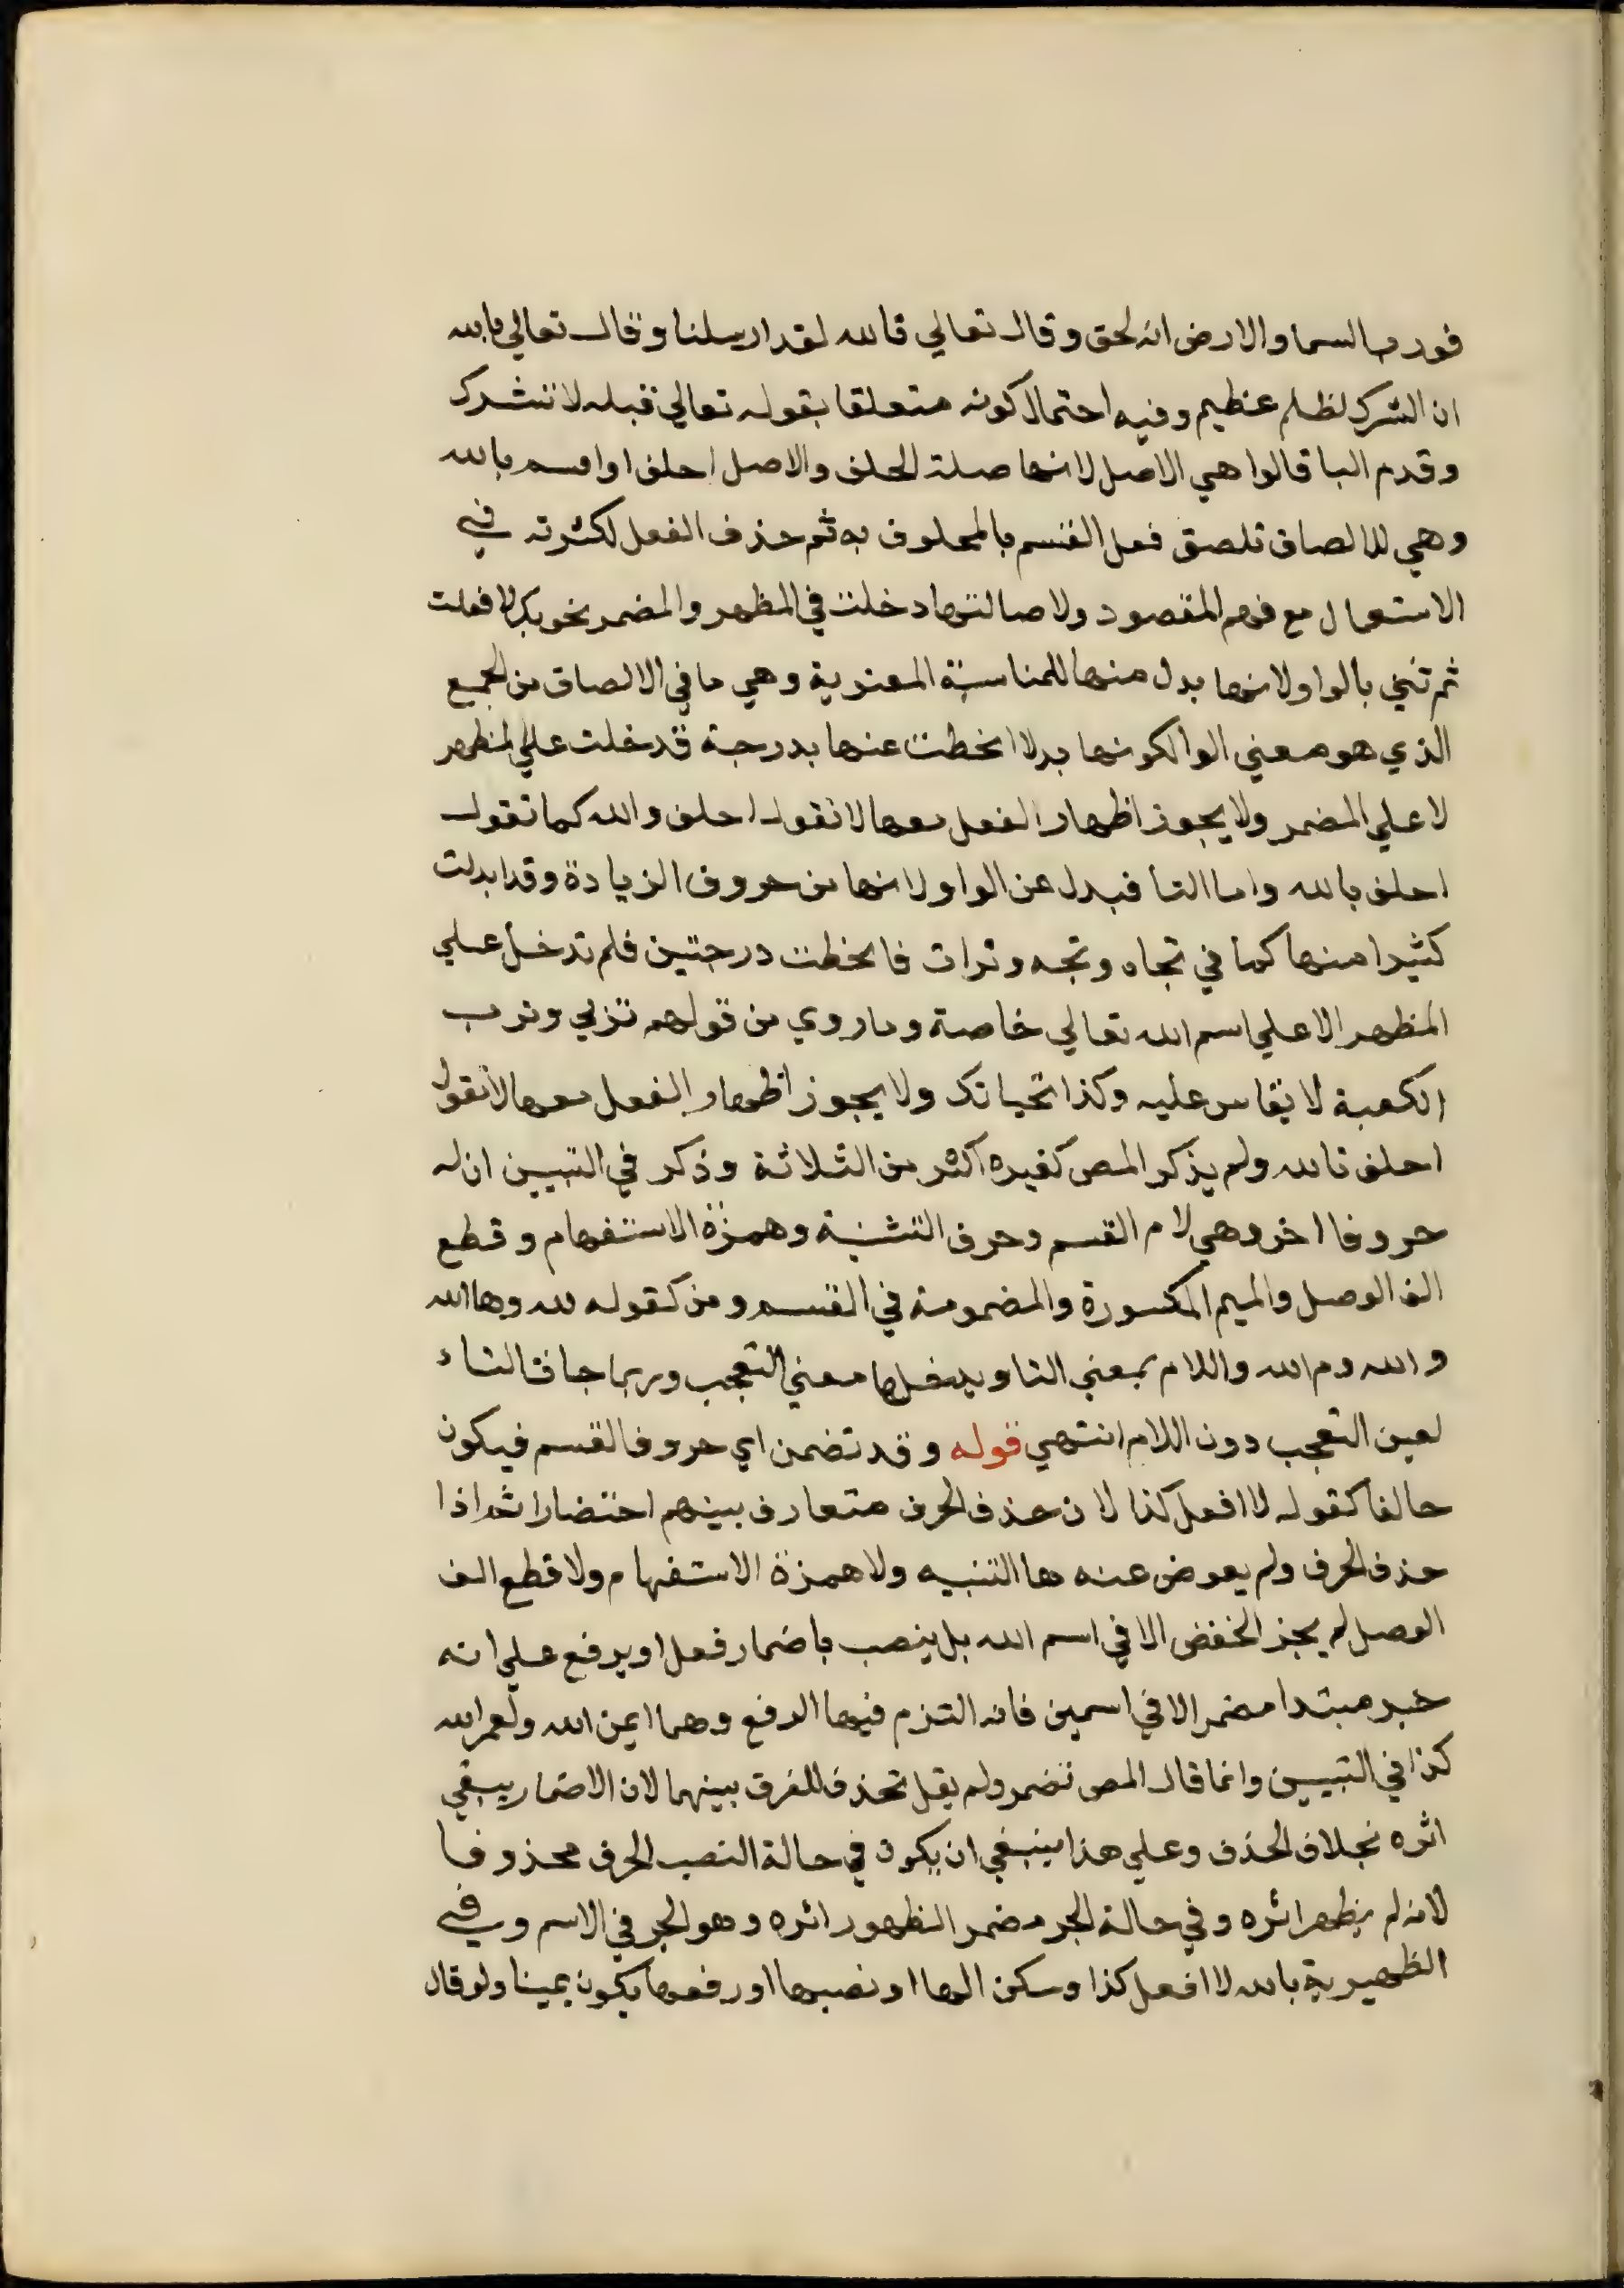 فورب السما والارض انه لحق وقال تعالي تالله لقد ارسلنا وقال تعالي بالله
ان الشرك لظلم عظيم وفيه احتمال كونه متعلقا بقوله تعالي قبله لا تشرك
وقدم البا قالوا هي الاصل لانها صلة الحلف والاصل احلف او اقسم بالله
وهي للالصاق تلصق فعل القسم بالمحلوف به ثم حذف الفعل لكثرته في
الاستعمال مع فهم المقصود ولاصالتها دخلت في المظهر والمضمر نحو بك لافعلت
ثم ثني بالواو لانها بدل منها للمناسبة المعنوية وهي ما في الالصاق من الجمع
الذي هو معني الوا لكونها بدلا انحطت عنها بدرجة فدخلت علي المظهر
لا علي المضمر ولا يجوز اظهار الفعل معها لا تقول احلف والله كما تقول
احلف بالله واما التا فبدل عن الواو لانها من حروف الزيادة وقد ابدلت
كثيرا منها كما في تجاه وتجه وتراث فانحطت درجتين فلم تدخل علي
المظهر الا علي اسم الله تعالي خاصة وما روي من قولهم تربي وترب
الكعبة لا يقاس عليه وكذا تحياتك ولا يجوز اظهار الفعل معها لا تقول
احلف تالله ولم يذكر المص كغيره اكثر من الثلاثة وذكر في التبيين ان له
حروفا اخر وهي لام القسم وحرف التنبيه وهمزة الاستفهام وقطع
الف الوصل والميم المكسورة والمضمومة في القسم ومن كقوله لله وها الله
والله وم الله واللام بمعني التا ويدخلها معني التعجب وربما جات التاء
لعين التعجب دون اللام انتهي قوله وقد تضمن اي حروف القسم فيكون
حالفا كقوله لا افعل كذا لان حذف الحرف متعارف بينهم اختصارا ثم اذا
حذف الحرف ولم يعوض عنه ها التنبيه ولا همزة الاستفهام ولا قطع الف
الوصل لم يجز الخفض الا في اسم الله بل ينصب باضمار فعل او يرفع علي انه
خبر مبتدا مضمر الا في اسمين فانه التزم فيهما الرفع وهما ايمن الله ولعمر الله
كذا في التبيين وانما قال المص تضمر ولم يقل تحذف للفرق بينهما لان الاضمار يبقي
اثره بخلاف الحذف وعلي هذا ينبغي ان يكون في حالة النصب الحرف محذوفا
لانه لم يظهر اثره وفي حالة الجر مضمر الظهور اثره وهو الجر في الاسم وفي
الظهيرية بالله لا افعل كذا وسكن الها او نصبها او رفعها يكون يمينا ولو قال